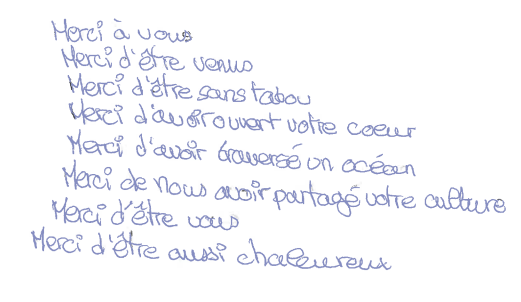 Merci à vous
Merci d'être venus
Merci d'être sans tabou
Merci d'avoir ouvert votre coeur
Merci d'avoir traversé un océan
Merci de nous avoir partagé votre culture
Merci d'être vous
Merci d'être aussi chaleureux